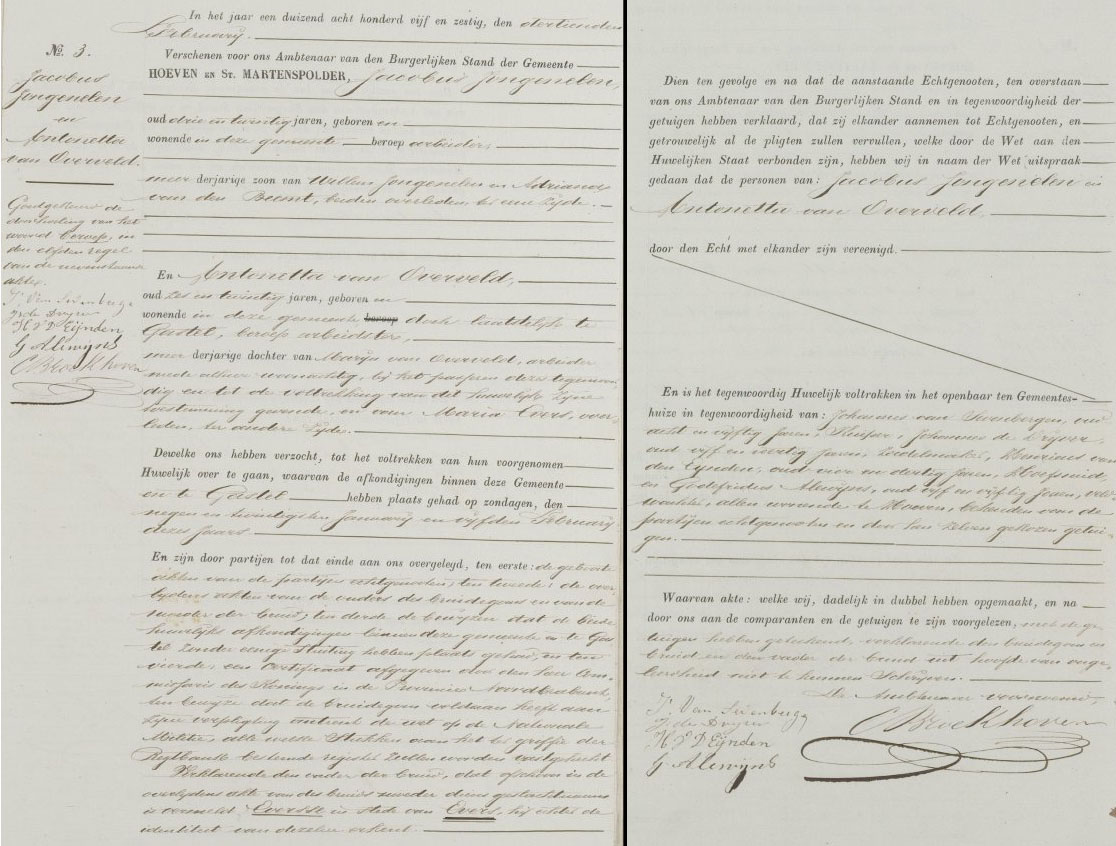 Nº. 3.
Jacobus
Jongenelen
en
Antonetta
van Overveld.
Goedgekeurd de
doorhaling van het
woord beroep, in
den elfden regel
van de nevenstaande
akte.
J. Van Seenberge
J de Bruijn
H V D Eijnden
G Alewijns
C Broekhoven
In het jaar een duizend acht honderd vijf en zestig, den dertienden
February.
Verschenen voor ons Ambtenaar van den Burgerlijken Stand der Gemeente
HOEVEN en St. MARTENSPOLDER, Jacobus Jongenelen,
oud drie en twintig jaren, geboren en
wonende in deze gemeente beroep arbeider,
meerderjarige zoon van Willem Jongenelen en Adriana
van den Beemt, beiden overleden ter eene zijde.
En Antonetta van Overveld,
oud zes en twintig jaren, geboren en
wonende in deze gemeente beroep doch laatstelijk te
Gastel, beroep arbeidster,
meerderjarige dochter van Marijn van Overveld, arbeider
mede alhier woonachtig, bij het passeren dezer tegenwoor-
dig en tot de voltrekking van dit huwelijk zijne
toestemming gevende, en van Maria Evers, over-
leden, ter andere zijde.
Dewelke ons hebben verzocht, tot het voltrekken van hun voorgenomen
Huwelijk over te gaan, waarvan de afkondigingen binnen deze Gemeente
en te Gastel hebben plaats gehad op zondagen, den
negen en twintigsten January en vijfden February
dezes jaars
En zijn door partijen tot dat einde aan ons overgelegd, ten eerste: de geboorte
akten van de partijen echtgenooten, ten tweede: de over-
lijdens akten van de ouders des bruidegoms en van de
moeder der bruid; ten derde de bewijzen dat de beide
huwelijks afkondigingen binnen deze gemeente en te Gas
tel zonder eenige stuiting hebben plaats gehad, en ten
vierde: een certificaat afgegeven door den Heer Com-
missaris des Konings in de Provincie Noordbrabant,
ten bewijze dat de bruidegom voldaan heeft aan
zijne verpligting omtrent de wet op de Nationale
Militie, alle welke stukken aan het ter griffie der
Regtbank berustende register zullen worden vastgehecht
Verklarende den vader der bruid, dat ofschoon in de
overlijdens akte van des bruids moeder diens geslachtsnaam
is vermeld Everste in stede van Evers, hij echter de
identiteit van dezelve erkent.
Dien ten gevolge en na dat de aanstaande Echtgenooten, ten overstaan
van ons Ambtenaar van den Burgerlijken Stand en in tegenwoordigheid der
getuigen hebben verklaard, dat zij elkander aannemen tot Echtgenooten, en
getrouwelijk al de pligten zullen vervullen, welke door de Wet aan den
Huwelijken Staat verbonden zijn, hebben wij in naam der Wet uitspraak
gedaan dat de personen van: Jacobus Jongenelen en
Antonetta van Overveld,
door den Echt met elkander zijn vereenigd.
En is het tegenwoordig Huwelijk voltrokken in het openbaar ten Gemeentes-
huize in tegenwoordigheid van: Johannes van Seenbergen, oud
acht en vijftig jaren, Johannes de Bruijn,
oud vijf en veertig jaren, Marinus van
den Eynden, oud vier en dertig jaren, Hoefsmid,
en Godefridus Alewijns, oud vijf en vijftig jaren, veld-
wachter, allen wonende te Hoeven, bekenden van de
partijen echtgenooten en door hen zelven gekozen getui-
gen.
Waarvan akte: welke wij, dadelijk in dubbel hebben opgemaakt, en na
door ons aan de comparanten en de getuigen te zijn voorgelezen, met de ge-
tuigen hebben geteekend, verklarende de bruidegom en
bruid en den vader der bruid uit hoofde van onge-
leerdheid niet te kunnen schrijven.
De Ambtenaar voornoemd,
J. Van Seenberge
J de Bruijn
H V D Eijnden
G Alewijns
C Broekhoven